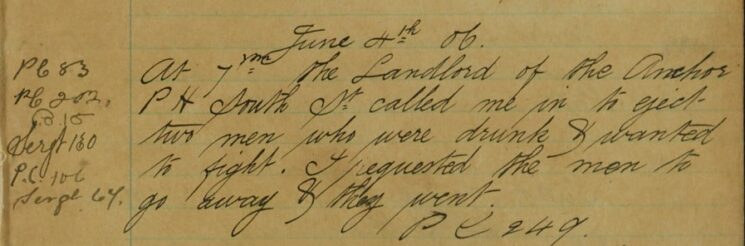 June 4th 06.
PC 83
PC 202,
CB 15
Sergt 160
P.C. 106
Sergt 64.
At 7pm the Landlord of the Anchor
P H South St called me in to eject
two men who were drunk & wanted
to fight. I requested the men to
go away & they went.
P C 249.